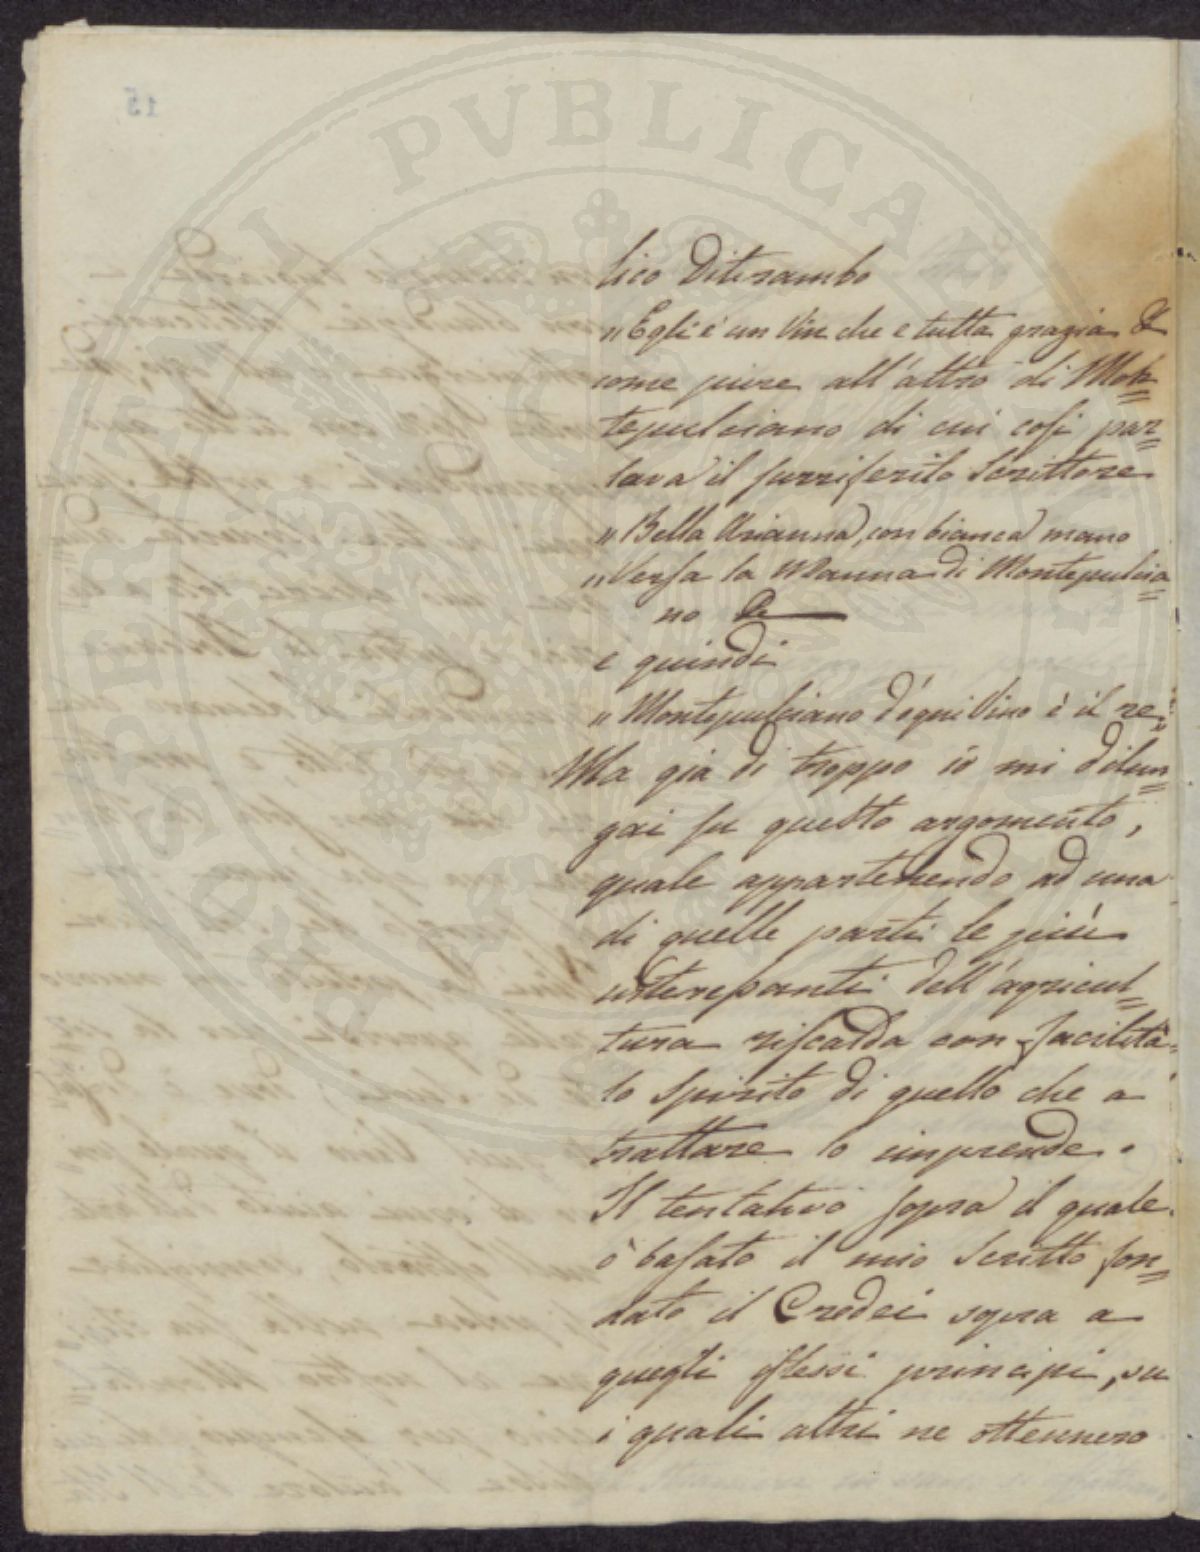 15
PROSPERITATI PVBLICAE
lico Ditirambo
„ Egli è un Vin che è tutta grazia &
come pure all'altro di Mon=
tepulciano di cui così par=
lava il surriferito Scrittore
„ Bella Arianna, con bianca mano
„ Versa la Manna di Montepulcia=
no &
e quindi
„ Montepulciano d'ogni Vino è il re „
Ma già di troppo io mi dilun=
gai su questo argomento,
quale appartenendo ad una
di quelle parti le più
interessanti dell'agricul=
tura riscalda con facilità
lo spirito di quello che a
trattare lo imprende.
Il tentativo sopra il quale
ò basato il mio Scritto fon=
dato il Credei sopra a
quegli istessi principi, su
i quali altri ne ottennero